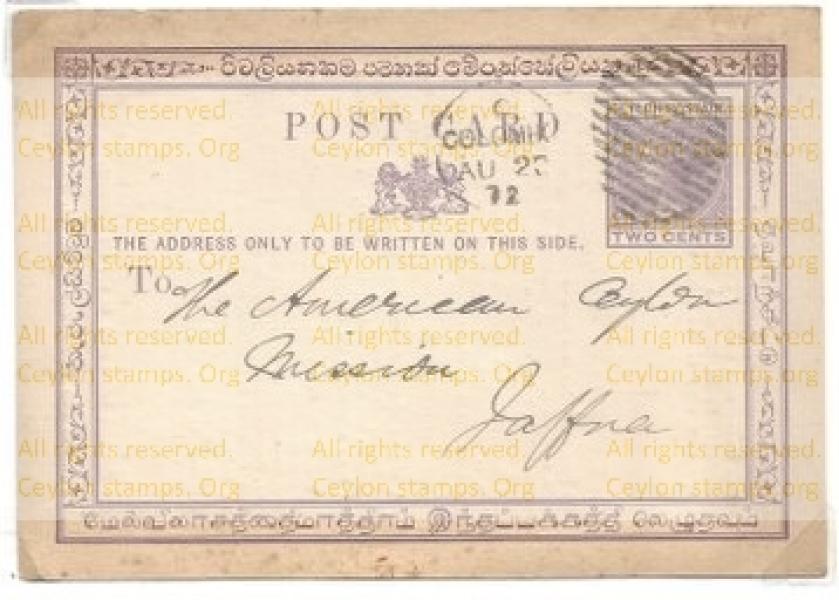 POST CARD
COLOMBO
AU 27
72
TWO CENTS
THE ADDRESS ONLY TO BE WRITTEN ON THIS SIDE.
To The American Ceylon
Mission
Jaffna
மேல்விலாசத்தைமாத்திரம் இந்தப்பக்கத்தி லெழுதவும்
All rights reserved. All rights reserved. All rights reserved.
Ceylon stamps. Org Ceylon stamps. Org Ceylon stamps. Org
All rights reserved. All rights reserved. All rights reserved.
Ceylon stamps. Org Ceylon stamps. Org Ceylon stamps. Org
All rights reserved. All rights reserved. All rights reserved.
Ceylon stamps. Org Ceylon stamps. Org Ceylon stamps. Org
All rights reserved. All rights reserved. All rights reserved.
Ceylon stamps. Org Ceylon stamps. Org Ceylon stamps. Org